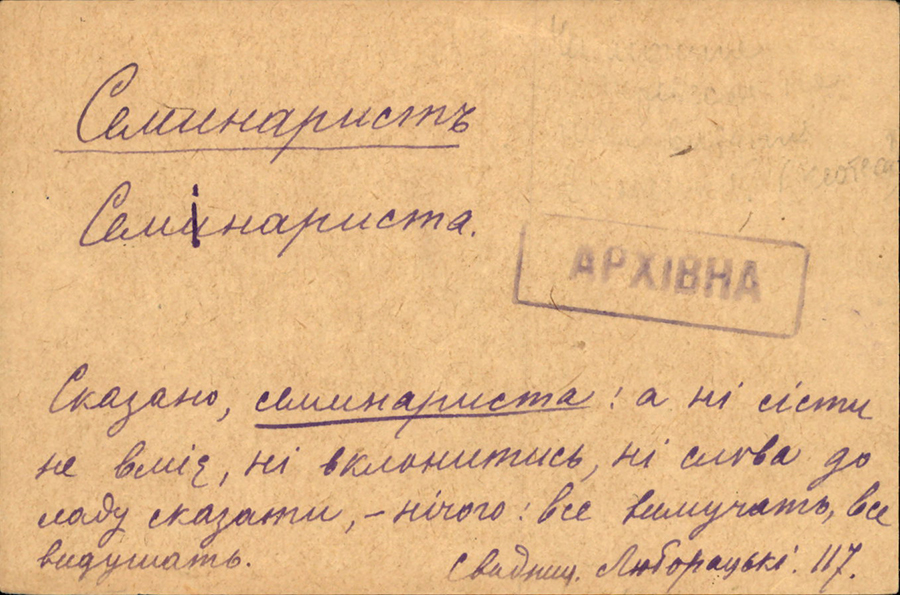 Семинаристъ
Семінариста.
АРХІВНА
Сказано, семинариста: а ні сісти
не вміє, ні вклонитись, ні слова до
ладу сказати, – нічого: все вимучать, все
видушать.
Свидниц. Люборацькі. 117.